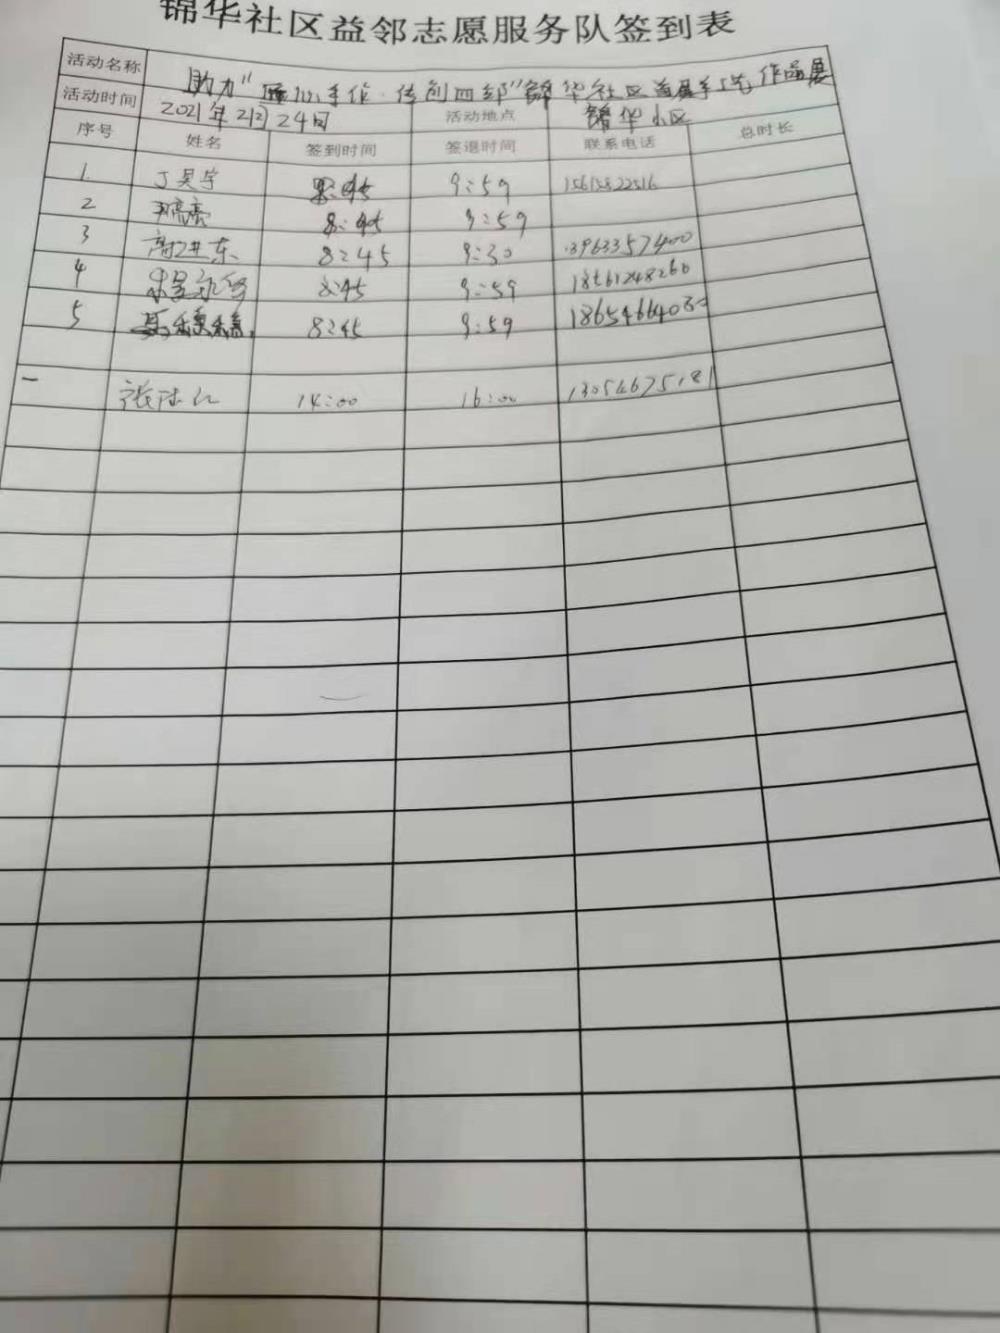 锦华社区益邻志愿服务队签到表
活动名称 助力"匠心手作·传创四邻"锦华社区首届手工艺作品展
活动时间 2021年2月24日 活动地点 锦华小区
序号 姓名 签到时间 签退时间 联系电话 总时长
1. 丁昊宇 8:45 9:59
2 8:45 9:59
3 高洪东 8:45 9:30 13963357400
4 8:45 9:59 18561248260
5 8:45 9:59
14:00 16:00 13054675181